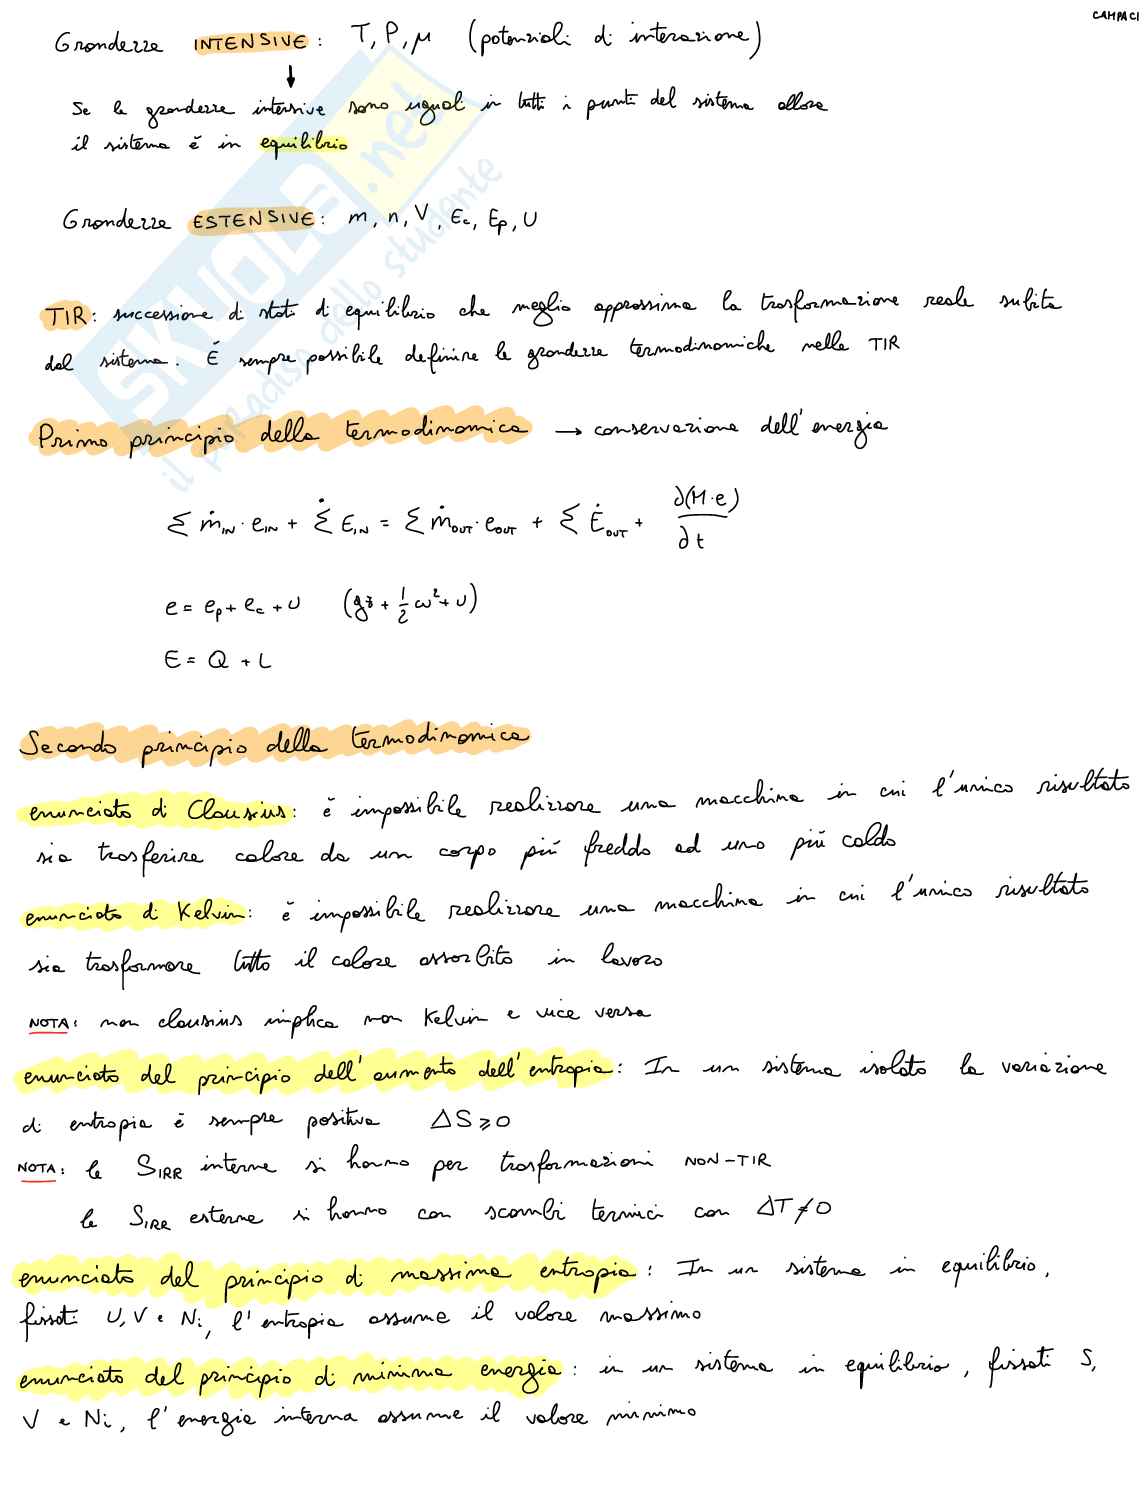 CAMPACI
Grandezze INTENSIVE: T, P, μ (potenziali di interazione)
↓
Se le grandezze intensive sono uguali in tutti i punti del sistema allora
il sistema è in equilibrio
Grandezze ESTENSIVE: m, n, V, Ec, Ep, U
TIR: successione di stati di equilibrio che meglio approssima la trasformazione reale subita
dal sistema. È sempre possibile definire le grandezze termodinamiche nella TIR
Primo principio della termodinamica → conservazione dell'energia
Σ ṁ_IN · e_IN + Σ Ė_IN = Σ ṁ_OUT · e_OUT + Σ Ė_OUT + ∂(M·e)/∂t
e = e_p + e_c + U (gz + 1/2 ω² + U)
E = Q + L
Secondo principio della termodinamica
enunciato di Clausius: è impossibile realizzare una macchina in cui l'unico risultato
sia trasferire calore da un corpo più freddo ad uno più caldo
enunciato di Kelvin: è impossibile realizzare una macchina in cui l'unico risultato
sia trasformare tutto il calore assorbito in lavoro
NOTA: non clausius implica non Kelvin e vice versa
enunciato del principio dell'aumento dell'entropia: In un sistema isolato la variazione
di entropia è sempre positiva ΔS ≥ 0
NOTA: le S_IRR interne si hanno per trasformazioni NON-TIR
le S_IRR esterne si hanno con scambi termici con ΔT ≠ 0
enunciato del principio di massima entropia: In un sistema in equilibrio,
fissati U, V e Ni, l'entropia assume il valore massimo
enunciato del principio di minima energia: in un sistema in equilibrio, fissati S,
V e Ni, l'energia interna assume il valore minimo
SKUOLA.net
il paradiso dello studente